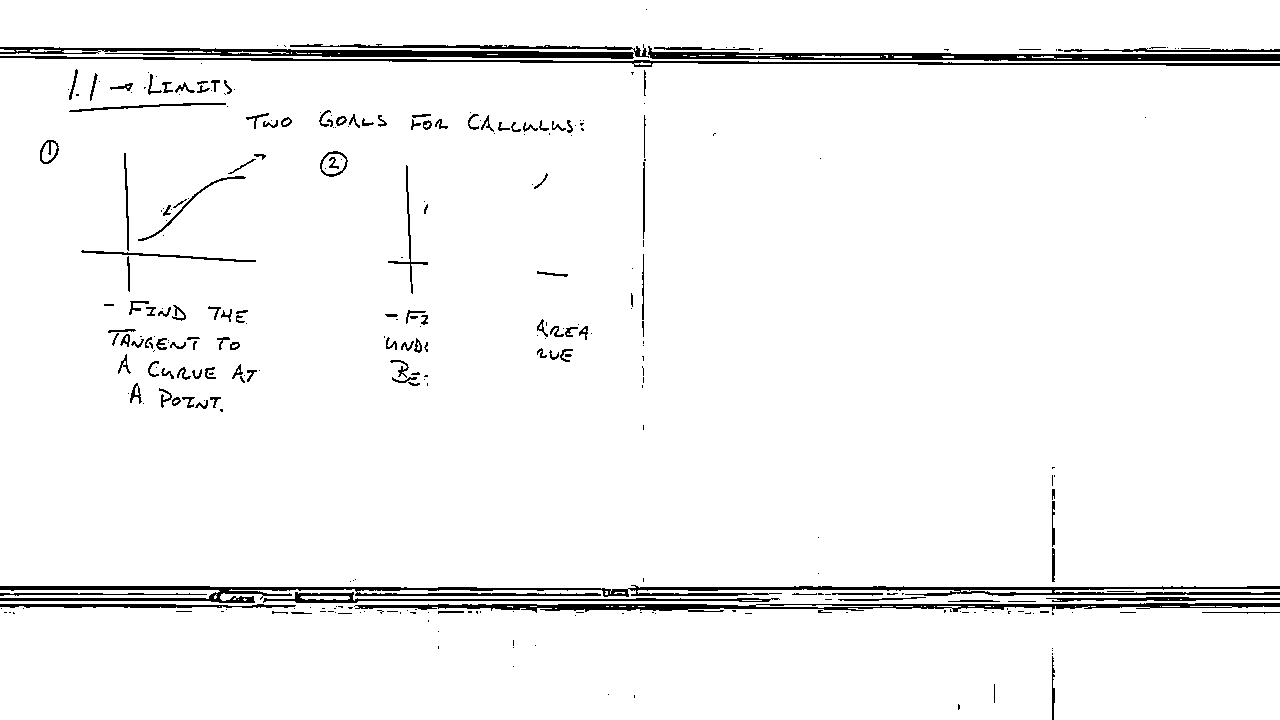 1.1 → LIMITS
TWO GOALS FOR CALCULUS:
①
- FIND THE
TANGENT TO
A CURVE AT
A POINT.
②
AREA